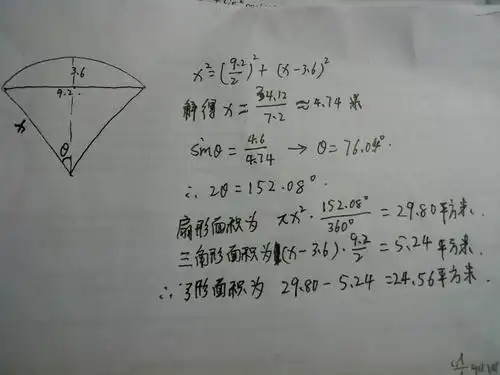 3.6
9.2
x
θ
x²=(9.2/2)²+(x-3.6)²
解得 x=34.12/7.2≈4.74米
sinθ=4.6/4.74→θ=76.04°.
∴2θ=152.08°.
扇形面积为 πx²·152.08°/360°=29.80平方米.
三角形面积为(x-3.6)·9.2/2=5.24平方米.
∴弓形面积为 29.80-5.24=24.56平方米.